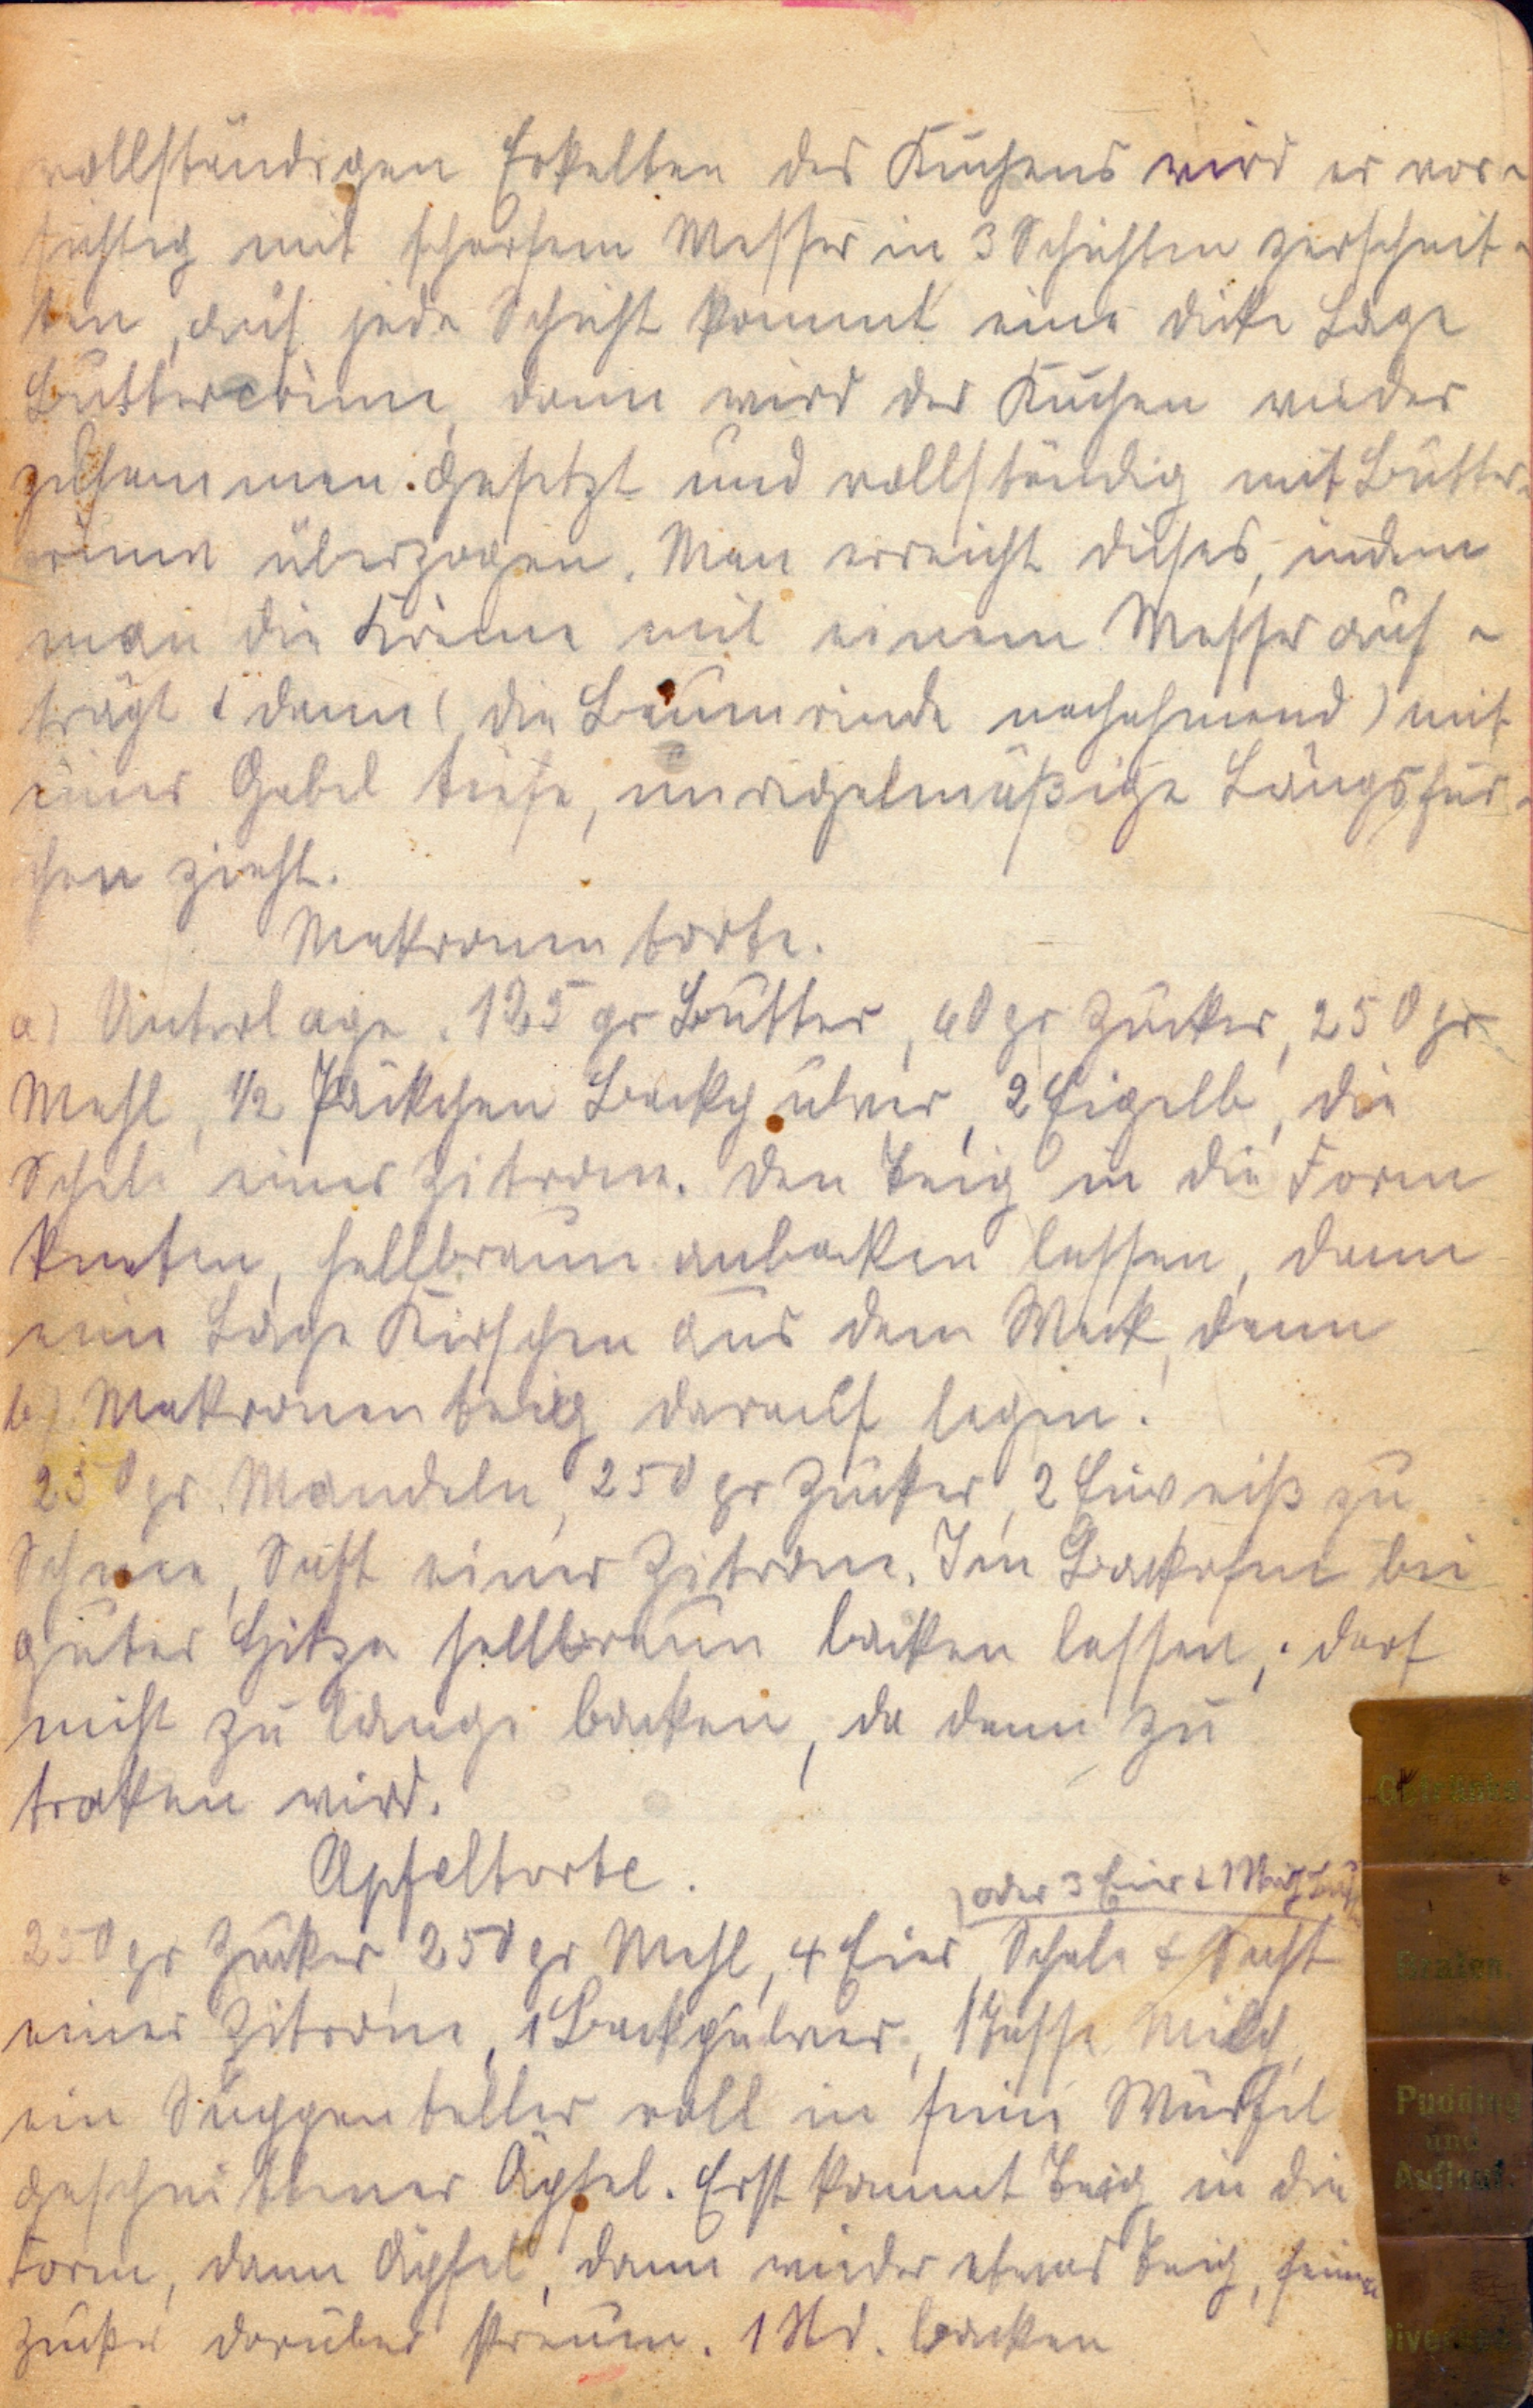 vollständigen Erkalten des Kuchens wird er vor-
sichtig mit scharfem Messer in 3 Schichten zerschnit-
ten, auf jede Schicht kommt eine dicke Lage
Buttercrème, dann wird der Kuchen wieder
zusammen.gesetzt und vollständig mit Butter-
crème überzogen. Man erreicht dieses, indem
man die Krème mit einem Messer auf-
trägt & dann (die Baumrinde nachahmend) mit
einer Gabel tiefe, unregelmäßige Längsfur-
chen zieht.
Makronentorte.
a) Unterlage. 125 gr Butter, 60 gr Zucker, 250 gr
Mehl, 1/2 Päckchen Backpulver, 2 Eigelb, die
Schale einer Zitrone. Den Teig in die Form
kneten, hellbraun anbacken lassen, dann
eine Lage Kirschen aus dem Weck, dann
b) Makronenteig darauf legen.
250 gr. Mandeln, 250 gr Zucker, 2 Eiweiß zu
Schnee, Saft einer Zitrone. Im Backofen bei
guter Hitze hellbraun backen lassen; darf
nicht zu lange backen, da dann zu
trocken wird.
Apfeltorte.
oder 3 Eier & 1
250 gr Zucker, 250 gr Mehl, 4 Eier, Schale & Saft
einer Zitrone, 1 Backpulver, 1 Tasse Milch,
ein Suppenteller voll in feine Würfel
geschnittener Äpfel. Erst kommt Teig in die
Form, dann Äpfel, dann wieder etwas Teig, feinen
Zucker darüber streuen. 1 Std. backen
Getränke
Braten
Pudding
und
Auflauf